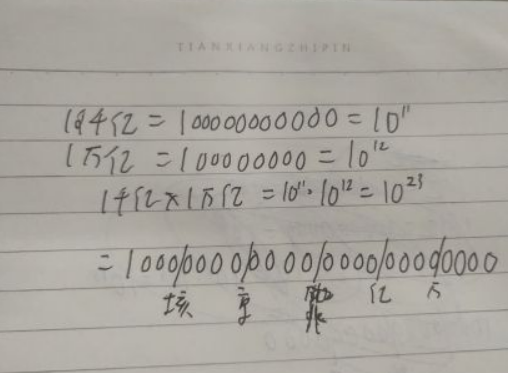 TIANXIANGZHIPIN
1千亿 = 100000000000 = 10¹¹
1万亿 = 100000000 = 10¹²
1千亿×1万亿 = 10¹¹·10¹² = 10²³
= 1000/0000/0000/0000/0000/0000
垓 京 兆 亿 万